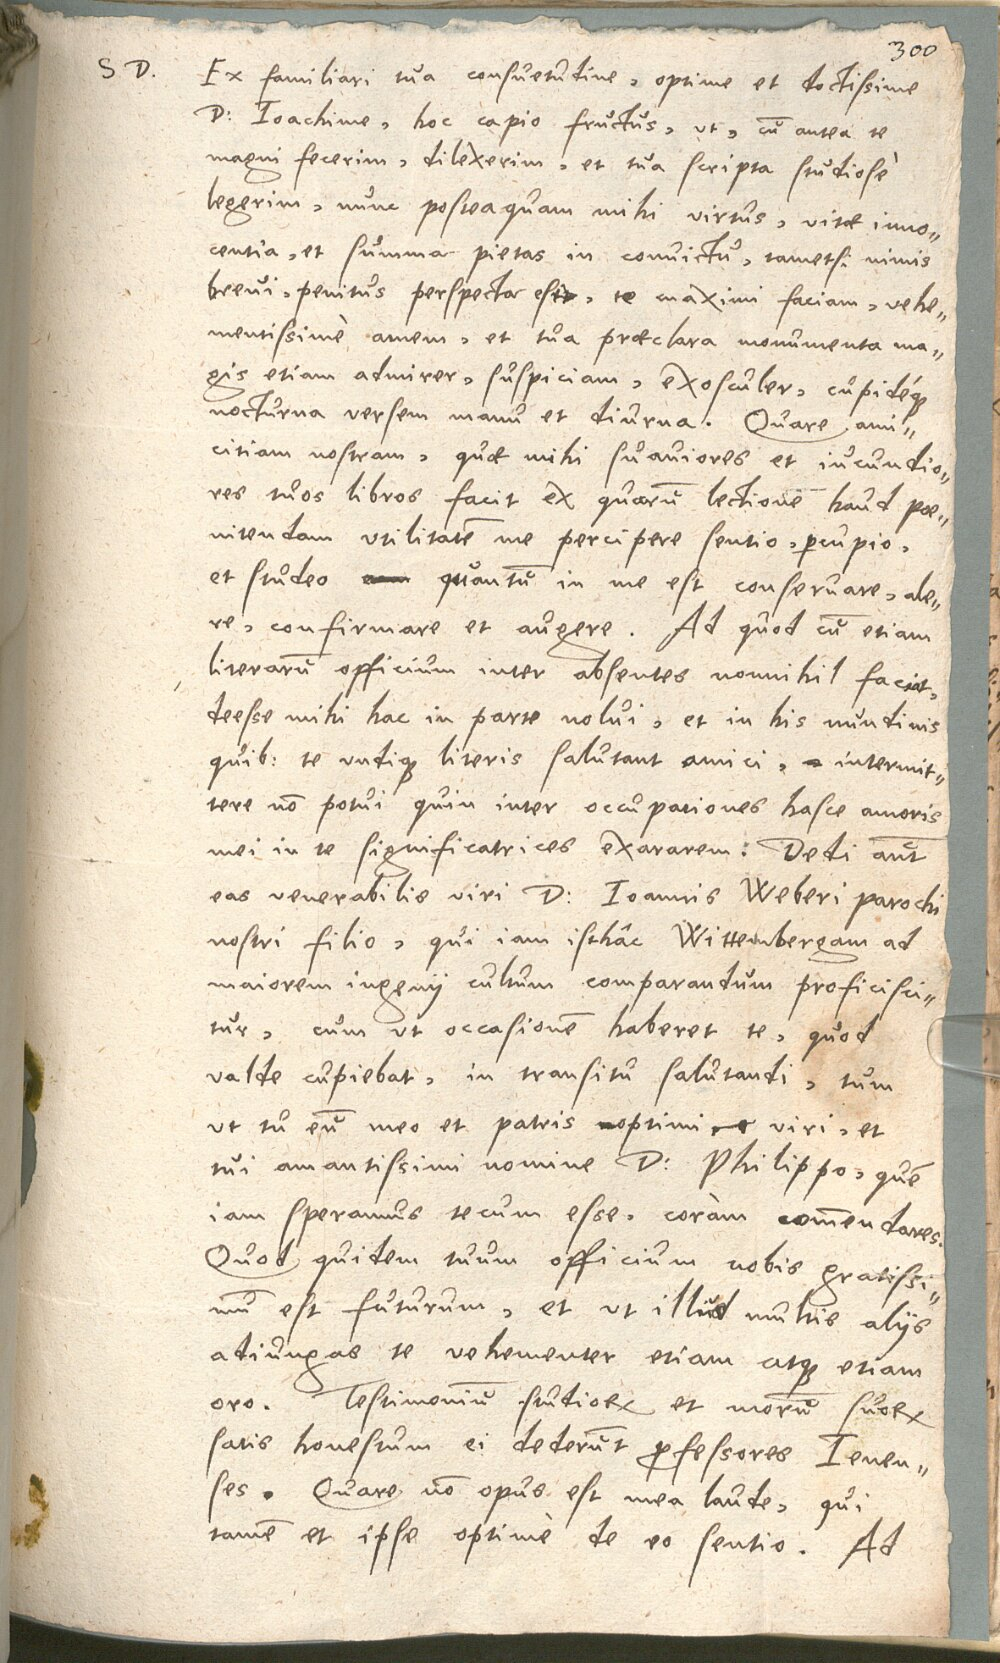 300
S D. Ex familiari tua consuetudine, optime et doctissime
D: Ioachime, hoc capio fructus, ut, cū antea te
magni fecerim, dilexerim, et tua scripta studiosè
legerim, nunc posteaquam mihi virtus, vitæ inno„
centia, et summa pietas in convictu, tametsi nimis
brevi, penitus perspecta est, te maximi faciam, vehe„
mentissimè amem, et tua præclara monumenta ma„
gis etiam admirer, suspiciam, exosculer, cupidéq́
nocturna versem manu et diurna. Quare ami„
citiam nostram, quæ mihi suaviores et iucundio„
res tuos libros facit ex quorū lectione haud pœ„
nitendam utilitatē me percipere sentio, ꝑcupio,
et studeo quantū in me est conservare, ale„
re, confirmare et augere. Ad quod cū etiam
literarū officium inter absentes nonnihil faciat,
deesse mihi hac in parte nolui, et in his nundinis
quib: te undiq́ literis salutant amici, intermit„
tere nō potui quin inter occupationes hasce amoris
mei in te significatrices exararem: Dedi aūt
eas venerabilis viri D: Ioannis Weberi parochi
nostri filio, qui iam isthâc Wittenbergam ad
maiorem ingenij cultum comparandum proficisci„
tur, cum ut occasionē haberet te, quod
valde cupiebat, in transitu salutandi, tum
ut tu eū meo et patris optimi viri, et
tui amantissimi nomine D: Philippo, quē
iam speramus tecum esse, coràm com̄endares.
Quod quidem tuum officium nobis gratissi„
mū est futurum, et ut illud multis alijs
adiungas te vehementer etiam atq́ etiam
oro. Testimoniū studioꝝ et morū suoꝝ
satis honestum ei dederūt ꝓfessores Ienen„
ses. Quare nō opus est mea laude, qui
tamē et ipse optimè de eo sentio. Ad